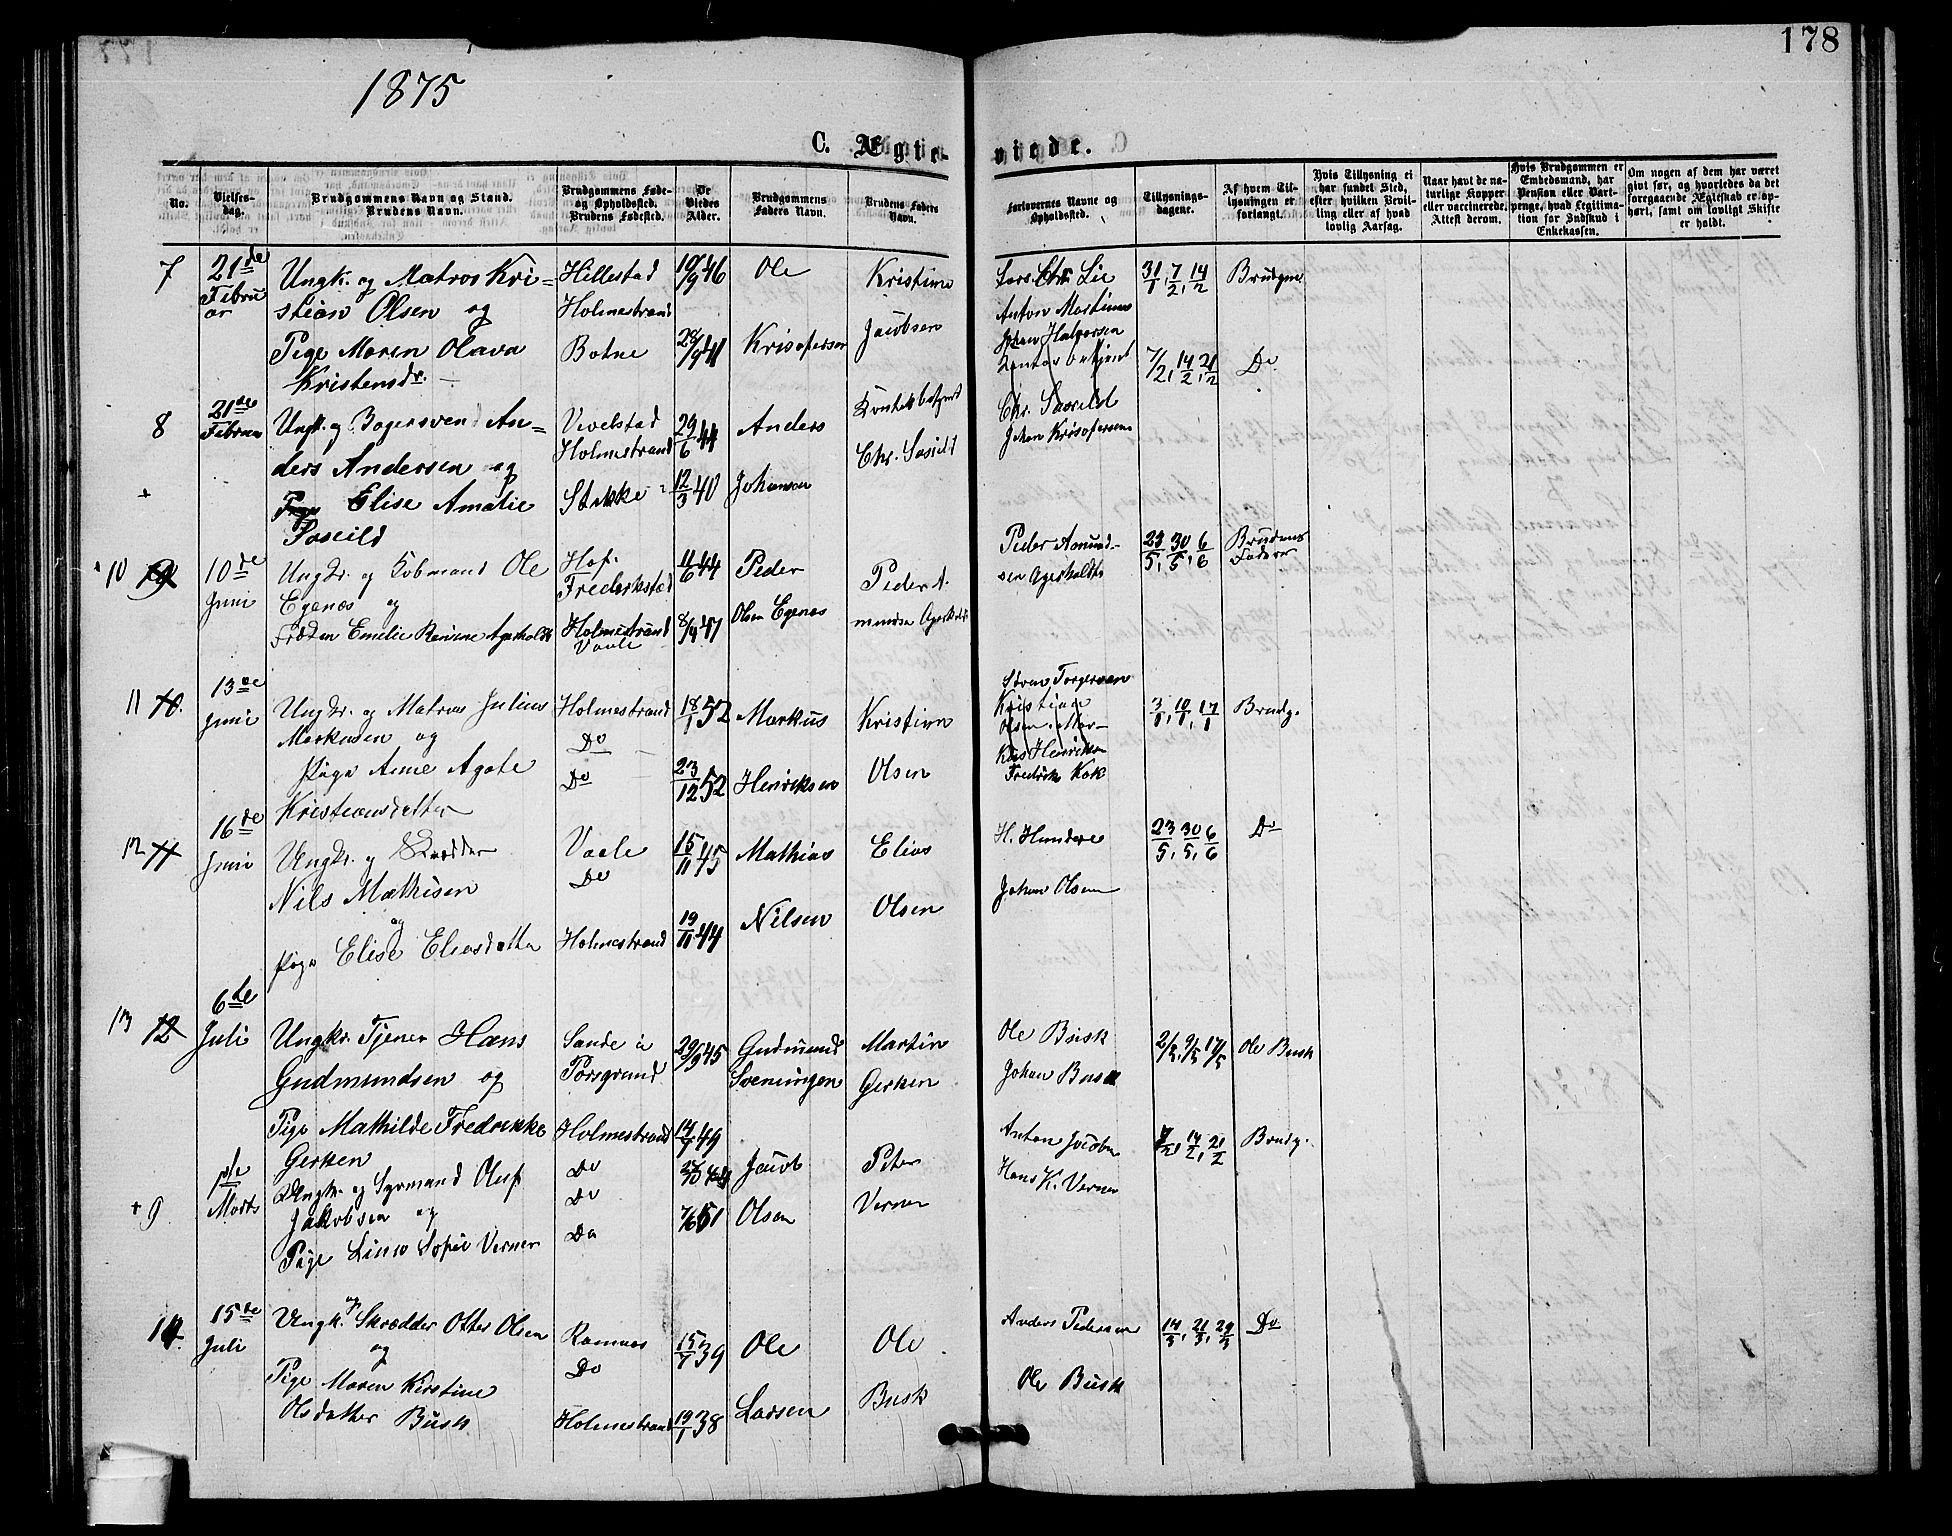 178
1875
C. Ægte- viede.
No.
Vielses-dag.
Brudgommens Navn og Stand. Brudens Navn.
Brudgommens Føde- og Opholdssted. Brudens Fødested.
De Viedes Alder.
Brudgommens Faders Navn.
Brudens Faders Navn.
Forlovernes Navne og Opholdssted.
Tillysnings-dagene.
Af hvem Tillysningen er forlangt.
Hvis Tillysning ei har fundet Sted, efter hvilken Bevilling eller af hvad lovlig Aarsag.
Naar havt de naturlige Kopper eller vaccinerede, Attest derom.
Hvis Brudgommen er Embedsmand, har Pension eller Vartpenge, hvad Legitimation for Indskud i Enkekassen.
Om nogen af dem har været givt før, og hvorledes da det foregaaende Ægteskab er ophørt, samt om lovligt Skifte er holdt.
7
21de Februar
Ungk. og Matros Kri=
stian Olsen og
Pige Maren Olava
Kristensdr.
Hillestad
Holmestrand
Botne
10/9 46
28/9 41
Ole
Krisofersen
Kristian
Jacobsen
Lars Chr Lie
Anton Martinus
Johan Halvorsen
31/1, 7/2, 14/2
Brudgm
8
21de Februar
Ungk. og Bagersvend An=
ders Andersen og
Elise Amalie
Vivelstad
Holmestrand
Stokke
29/6 44
12/3 40
Anders
Johansen
Chr. Saxild
Chr. Saxild
Johan Krisofersen
7/2, 14/2, 21/2
Do
10 9
10de Juni
Ungkr. og Kobmand Ole
Egenæs og
Frøken Emelie Agerholdt
Hof.
Frederikstad
Holmestrand
Vaale
11/6 44
8/9 47
Peder
Olsen Egenæs
Peder A.
mundsen Agerholdt
Peder Amund-
sen Agerholdt
23/5, 30/5, 6/6
Brudens Fader
11 10.
13de Juni
Ungkr. og Matros Julius
Markusen og
Pige Anne Agate
Kristiansdatter
Holmestrand
Do
Do
18/1 52
23/12 52
Markus
Henriksen
Kristian
Olsen
Søren Torgersen
Kristian
Olsen
Henriksen
Fredrik Kok
3/1, 10/1, 17/1
Brudg.
12 11
16de Juni
Ungkr. og Skrædder
Nils Mathisen
og
Pige Elise Eliasdatter
Vaale
Do
Holmestrand
15/11 45
19/11 44
Mathias
Nilsen
Elias
Olsen
H. Hundere
Johan Olsen
23/5, 30/5, 6/6
Do
13 12
6te Juli
Ungkr. Tjener Hans
Gudmundsen og
Pige Mathilde Fredrikke
Gerken
Sande i
Porsgrund
Holmestrand
29/9 45
14/7 49
Gudmund
Sveningen
Martin
Gerken
Ole Busk
Johan Busk
2/5, 9/5, 17/5
Ole Busk
+ 9.
1ste Marts
Ungkr. og Sømand Oluf
Jakobsen og
Pige Lino Sofie Verner
Do
Do
Do
7/6 51
Jacob
Olsen
Peter
Verner
Anton Jacobsen
Hans K. Verner
7/2, 14/2, 21/2
Brudg.
14.
15de Juli
Ungk. og Skrædder Otter Olsen
og
Pige Maren Kirstine
Olsdatter Busk
Ramnæs
Do
Holmestrand
15/7 39
19/1 38
Ole
Larsen
Ole
Busk
Anders Pedersen
Ole Busk
14/3, 21/3, 29/3
Do